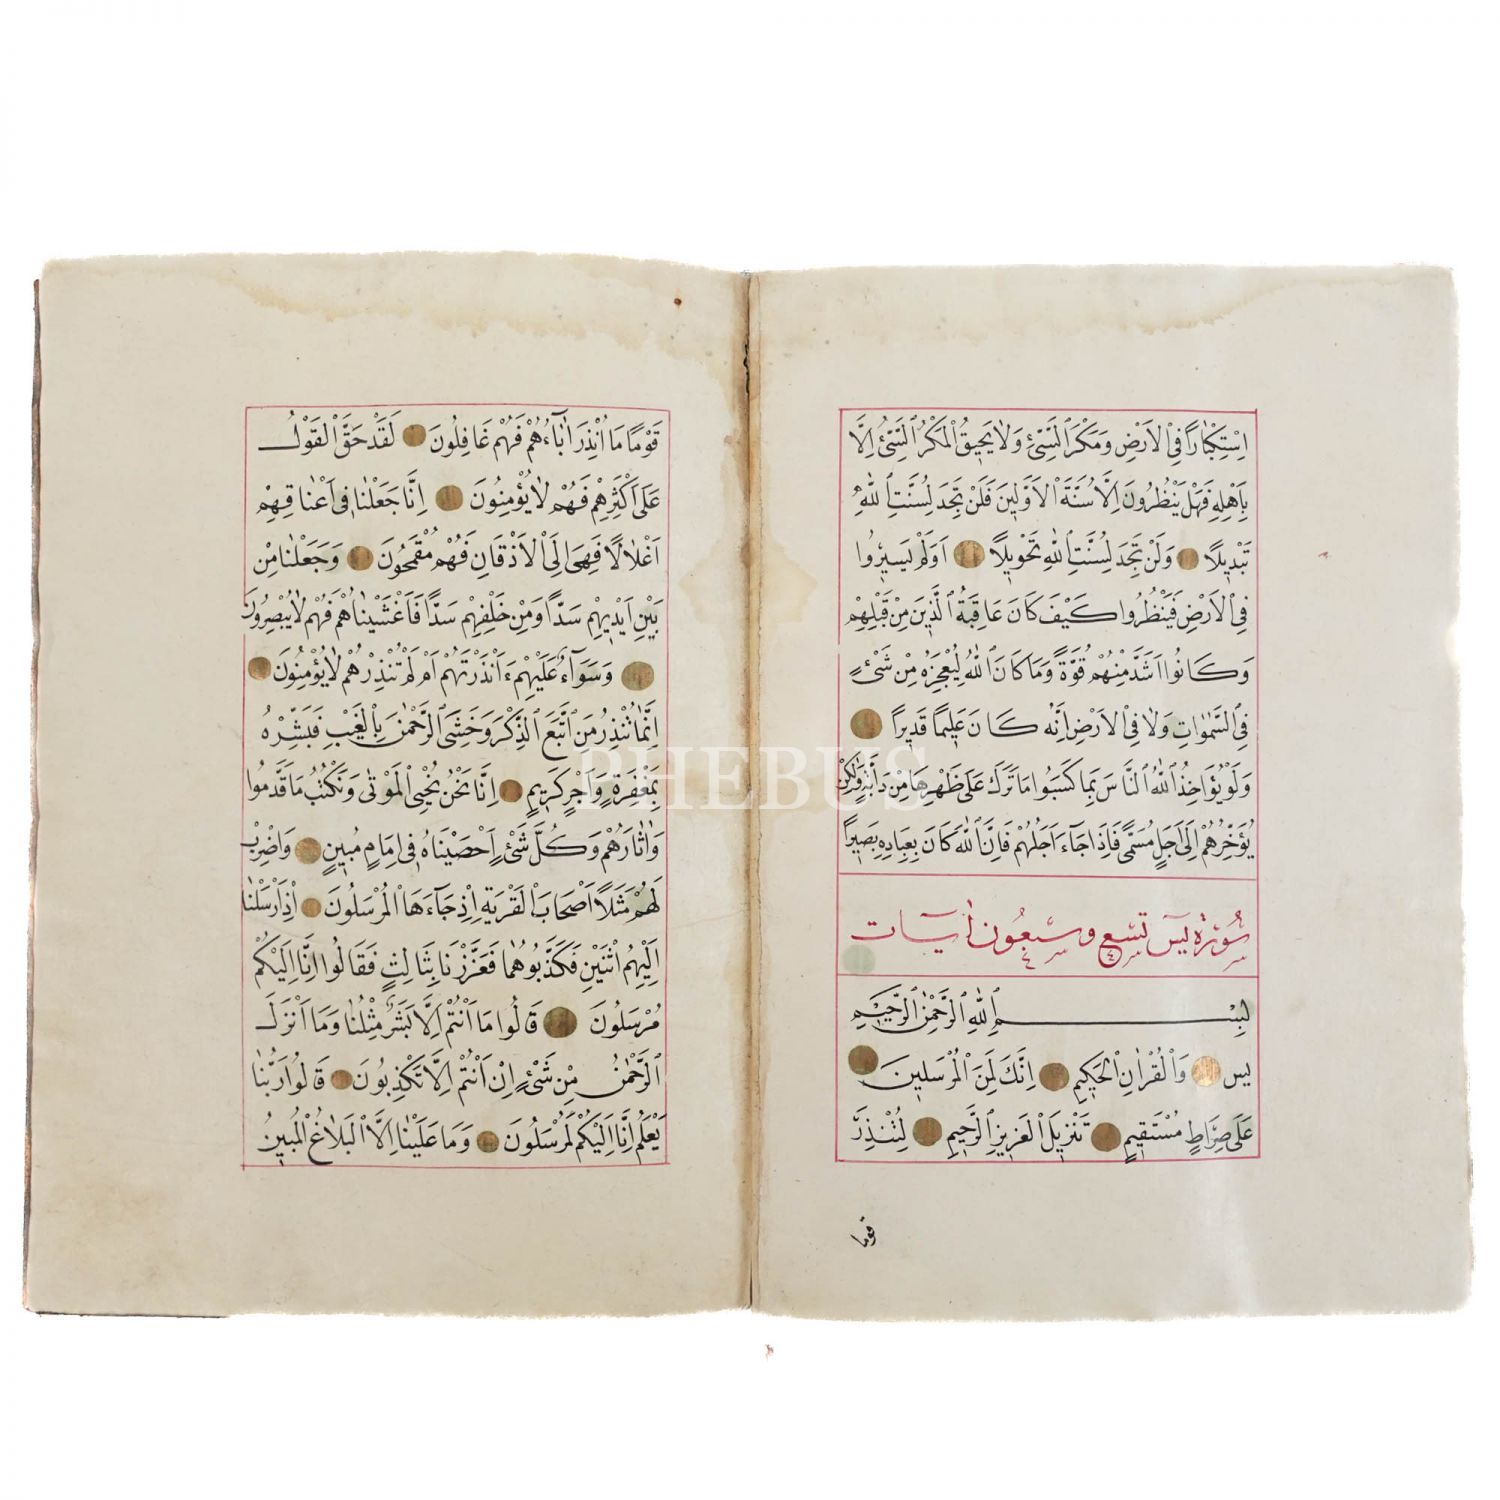 اِسْتِكْبَارًا فِي الْاَرْضِ وَمَكْرَ السَّيِّئِ وَلَا يَحِيقُ الْمَكْرُ السَّيِّئُ اِلَّا
بِاَهْلِهِ فَهَلْ يَنْظُرُونَ اِلَّا سُنَّةَ الْاَوَّلِينَ فَلَنْ تَجِدَ لِسُنَّتِ اللّٰهِ
تَبْدِيلًا وَلَنْ تَجِدَ لِسُنَّتِ اللّٰهِ تَحْوِيلًا اَوَلَمْ يَسِيرُوا
فِي الْاَرْضِ فَيَنْظُرُوا كَيْفَ كَانَ عَاقِبَةُ الَّذِينَ مِنْ قَبْلِهِمْ
وَكَانُوا اَشَدَّ مِنْهُمْ قُوَّةً وَمَا كَانَ اللّٰهُ لِيُعْجِزَهُ مِنْ شَيْءٍ
فِي السَّمٰوَاتِ وَلَا فِي الْاَرْضِ اِنَّهُ كَانَ عَلِيمًا قَدِيرًا
وَلَوْ يُؤَاخِذُ اللّٰهُ النَّاسَ بِمَا كَسَبُوا مَا تَرَكَ عَلٰى ظَهْرِهَا مِنْ دَابَّةٍ وَلٰكِنْ
يُؤَخِّرُهُمْ اِلٰى اَجَلٍ مُسَمًّى فَاِذَا جَاءَ اَجَلُهُمْ فَاِنَّ اللّٰهَ كَانَ بِعِبَادِهِ بَصِيرًا
سُورَةُ يٰسٓ تسع وسبعون اٰيات
بِسْمِ اللّٰهِ الرَّحْمٰنِ الرَّحِيمِ
يٰسٓ وَالْقُرْاٰنِ الْحَكِيمِ اِنَّكَ لَمِنَ الْمُرْسَلِينَ
عَلٰى صِرَاطٍ مُسْتَقِيمٍ تَنْزِيلَ الْعَزِيزِ الرَّحِيمِ لِتُنْذِرَ
قوما
قَوْمًا مَا اُنْذِرَ اٰبَاؤُهُمْ فَهُمْ غَافِلُونَ لَقَدْ حَقَّ الْقَوْلُ
عَلٰى اَكْثَرِهِمْ فَهُمْ لَا يُؤْمِنُونَ اِنَّا جَعَلْنَا فِي اَعْنَاقِهِمْ
اَغْلَالًا فَهِيَ اِلَى الْاَذْقَانِ فَهُمْ مُقْمَحُونَ وَجَعَلْنَا مِنْ
بَيْنِ اَيْدِيهِمْ سَدًّا وَمِنْ خَلْفِهِمْ سَدًّا فَاَغْشَيْنَاهُمْ فَهُمْ لَا يُبْصِرُونَ
وَسَوَاءٌ عَلَيْهِمْ ءَاَنْذَرْتَهُمْ اَمْ لَمْ تُنْذِرْهُمْ لَا يُؤْمِنُونَ
اِنَّمَا تُنْذِرُ مَنِ اتَّبَعَ الذِّكْرَ وَخَشِيَ الرَّحْمٰنَ بِالْغَيْبِ فَبَشِّرْهُ
بِمَغْفِرَةٍ وَاَجْرٍ كَرِيمٍ اِنَّا نَحْنُ نُحْيِي الْمَوْتٰى وَنَكْتُبُ مَا قَدَّمُوا
وَاٰثَارَهُمْ وَكُلَّ شَيْءٍ اَحْصَيْنَاهُ فِي اِمَامٍ مُبِينٍ وَاضْرِبْ
لَهُمْ مَثَلًا اَصْحَابَ الْقَرْيَةِ اِذْ جَاءَهَا الْمُرْسَلُونَ اِذْ اَرْسَلْنَا
اِلَيْهِمُ اثْنَيْنِ فَكَذَّبُوهُمَا فَعَزَّزْنَا بِثَالِثٍ فَقَالُوا اِنَّا اِلَيْكُمْ
مُرْسَلُونَ قَالُوا مَا اَنْتُمْ اِلَّا بَشَرٌ مِثْلُنَا وَمَا اَنْزَلَ
الرَّحْمٰنُ مِنْ شَيْءٍ اِنْ اَنْتُمْ اِلَّا تَكْذِبُونَ قَالُوا رَبُّنَا
يَعْلَمُ اِنَّا اِلَيْكُمْ لَمُرْسَلُونَ وَمَا عَلَيْنَا اِلَّا الْبَلَاغُ الْمُبِينُ
PHEBUS